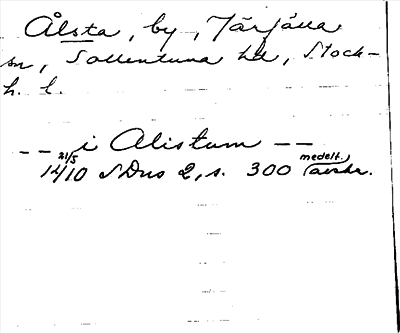 Ålsta, by, Järfälla
sn, Sollentuna hd, Stock-
h. l.
-- i Alistum --
21/5 1410 SDns 2, s. 300 (medelt. avskr.